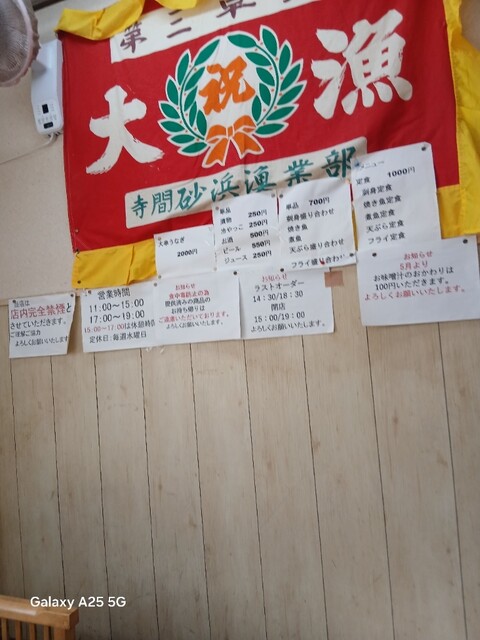 大 祝 漁
寺間砂浜漁業部
当店は
店内完全禁煙と
させていただきます。
ご理解ご協力
よろしくお願いいたします
営業時間
11:00〜15:00
17:00〜19:00
15:00〜17:00は休憩時間
定休日:毎週水曜日
2000円
お知らせ
食中毒防止の為
提供済みの商品の
お持ち帰りは
ご遠慮いただいております。
よろしくお願いいたします。
単品
漬物 250円
冷やっこ 250円
お酒 500円
ビール 550円
ジュース 250円
お知らせ
ラストオーダー
14:30/18:30
閉店
15:00/19:00
よろしくお願いいたします。
単品 700円
刺身盛り合わせ
焼き魚
煮魚
天ぷら盛り合わせ
フライ盛り合わせ
メニュー
定食 1000円
刺身定食
焼き魚定食
煮魚定食
天ぷら定食
フライ定食
お知らせ
5月より
お味噌汁のおかわりは
100円いただきます。
よろしくお願いいたします。
Galaxy A25 5G